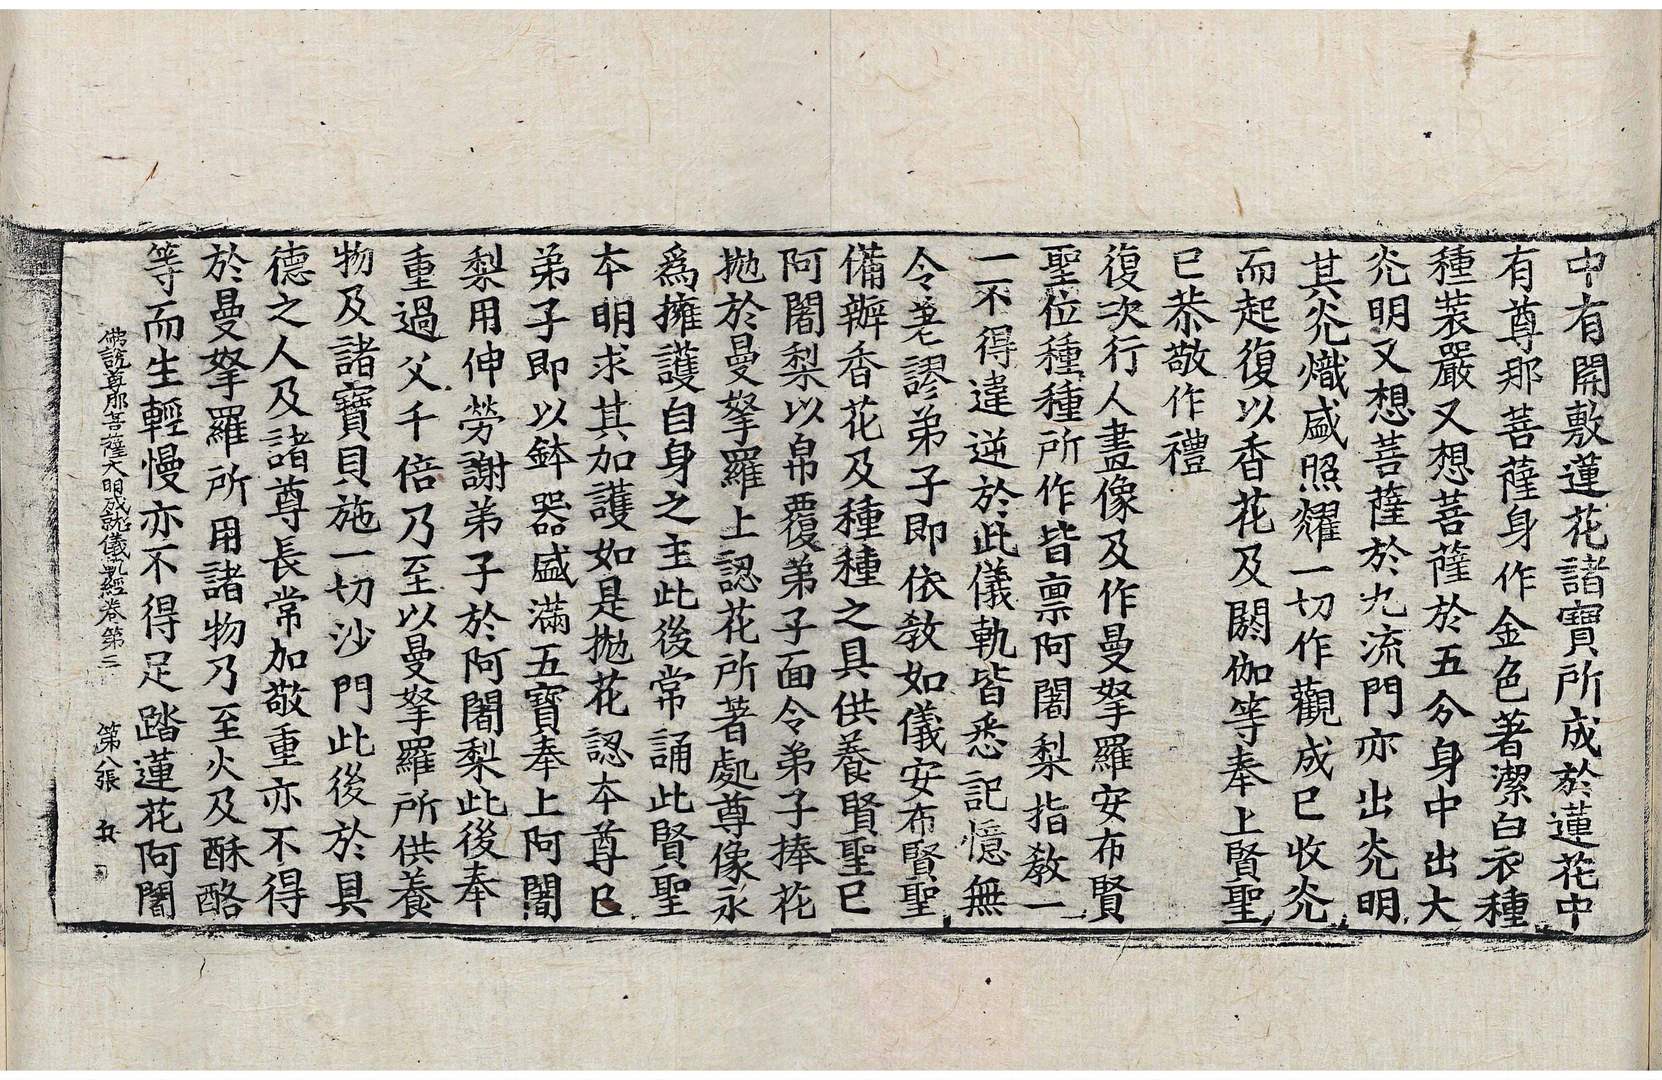 中有開敷蓮花諸寶所成於蓮花中
有尊那菩薩身作金色著潔白衣種
種裝嚴又想菩薩於五分身中出大
光明又想菩薩於九流門亦出光明
其光熾盛照耀一切作觀成已收光
而起復以香花及閼伽等奉上賢聖
已恭敬作禮
復次行人畫像及作曼拏羅安布賢
聖位種種所作皆禀阿闍梨指教一
一不得違逆於此儀軌皆悉記憶無
令差謬弟子即依教如儀安布賢聖
備辦香花及種種之具供養賢聖已
阿闍梨以帛覆弟子面令弟子捧花
拋於曼拏羅上認花所著處尊像永
爲擁護自身之主此後常誦此賢聖
本明求其加護如是拋花認本尊已
弟子即以鉢器盛滿五寶奉上阿闍
梨用伸勞謝弟子於阿闍梨此後奉
重過父千倍乃至以曼拏羅所供養
物及諸寶貝施一切沙門此後於具
德之人及諸尊長常加敬重亦不得
於曼拏羅所用諸物乃至火及酥酪
等而生輕慢亦不得足踏蓮花阿闍
佛說尊那菩薩大明成就儀軌經卷第三 第八張